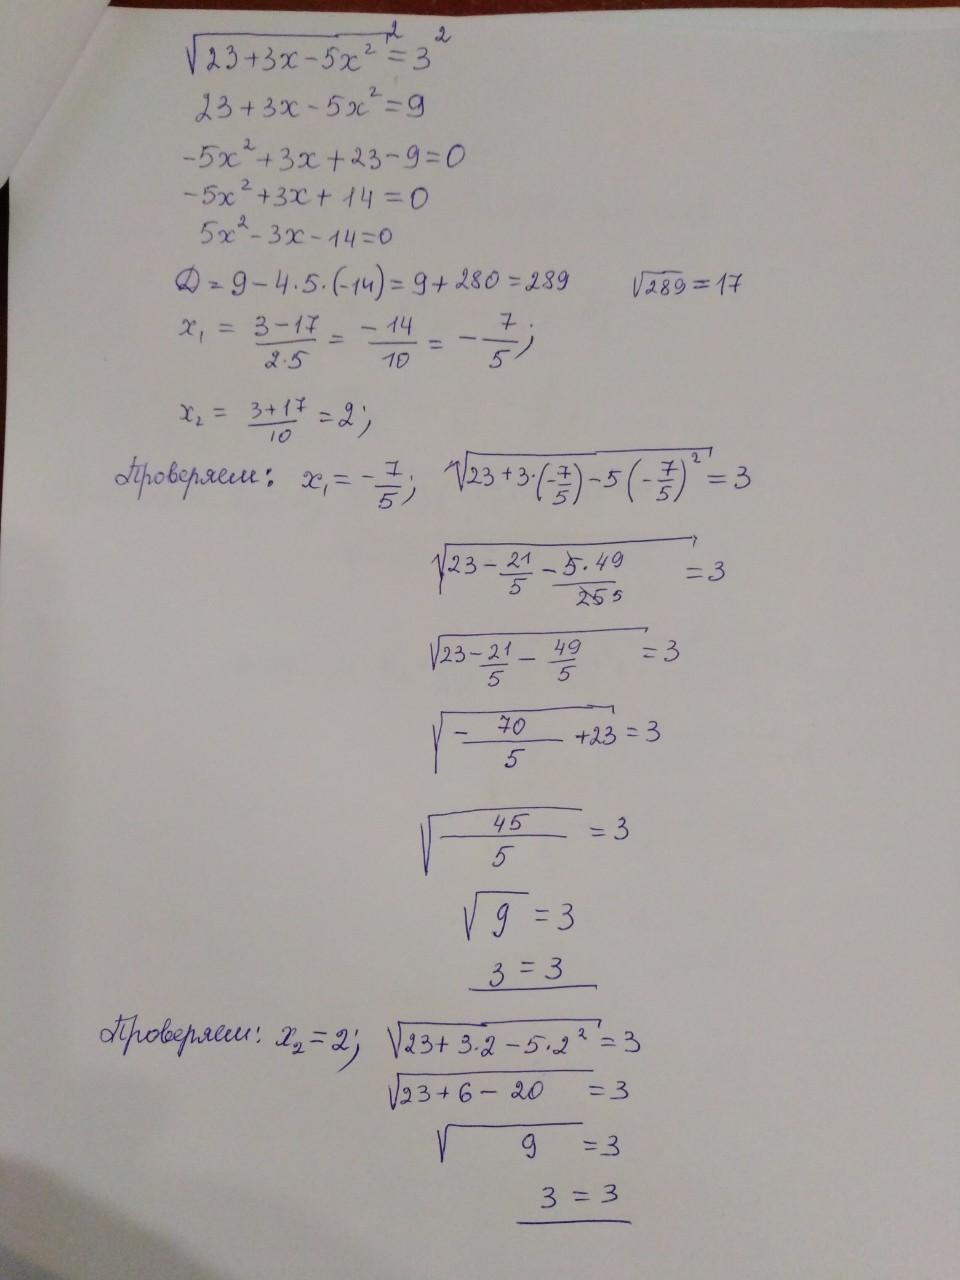 √(23+3x-5x²)² = 3²
23+3x-5x²=9
-5x²+3x+23-9=0
-5x²+3x+14=0
5x²-3x-14=0
D=9-4·5·(-14)=9+280=289 √289=17
x₁ = (3-17)/(2·5) = -14/10 = -7/5;
x₂ = (3+17)/10 = 2;
Проверяем: x₁ = -7/5; √(23+3·(-7/5)-5(-7/5)²) = 3
√(23-21/5-5·49/255) = 3
√(23-21/5-49/5) = 3
√(-70/5+23) = 3
√(45/5) = 3
√9 = 3
3 = 3
Проверяем: x₂=2; √(23+3·2-5·2²) = 3
√(23+6-20) = 3
√9 = 3
3 = 3